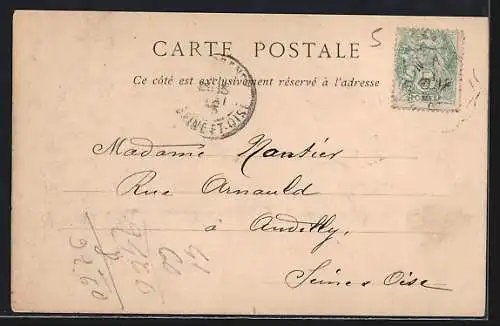 5
CARTE POSTALE
Ce côté est exclusivement réservé à l'adresse
SEINE-ET-OISE
Madame Nantier
Rue Arnauld
à Andilly,
Seine & Oise